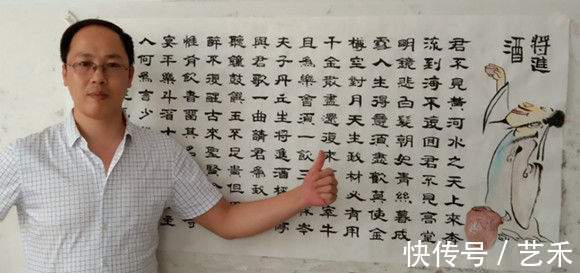 将進
酒
君不見黃河水之天上來奔
流到海不復回君不見高堂
明鏡悲白髮朝如青絲暮成
雪人生得意須盡歡莫使金
樽空對月天生我材必有用
千金散盡還復來宰牛
且為樂會須一飲三岑
夫子丹丘生將進酒杯
與君歌一曲請君為我
聽鐘鼓饌玉不足貴但
醉不復醒古來聖賢
惟有飲者留其名
宴平樂斗酒十
人何為言少
快传号／艺禾